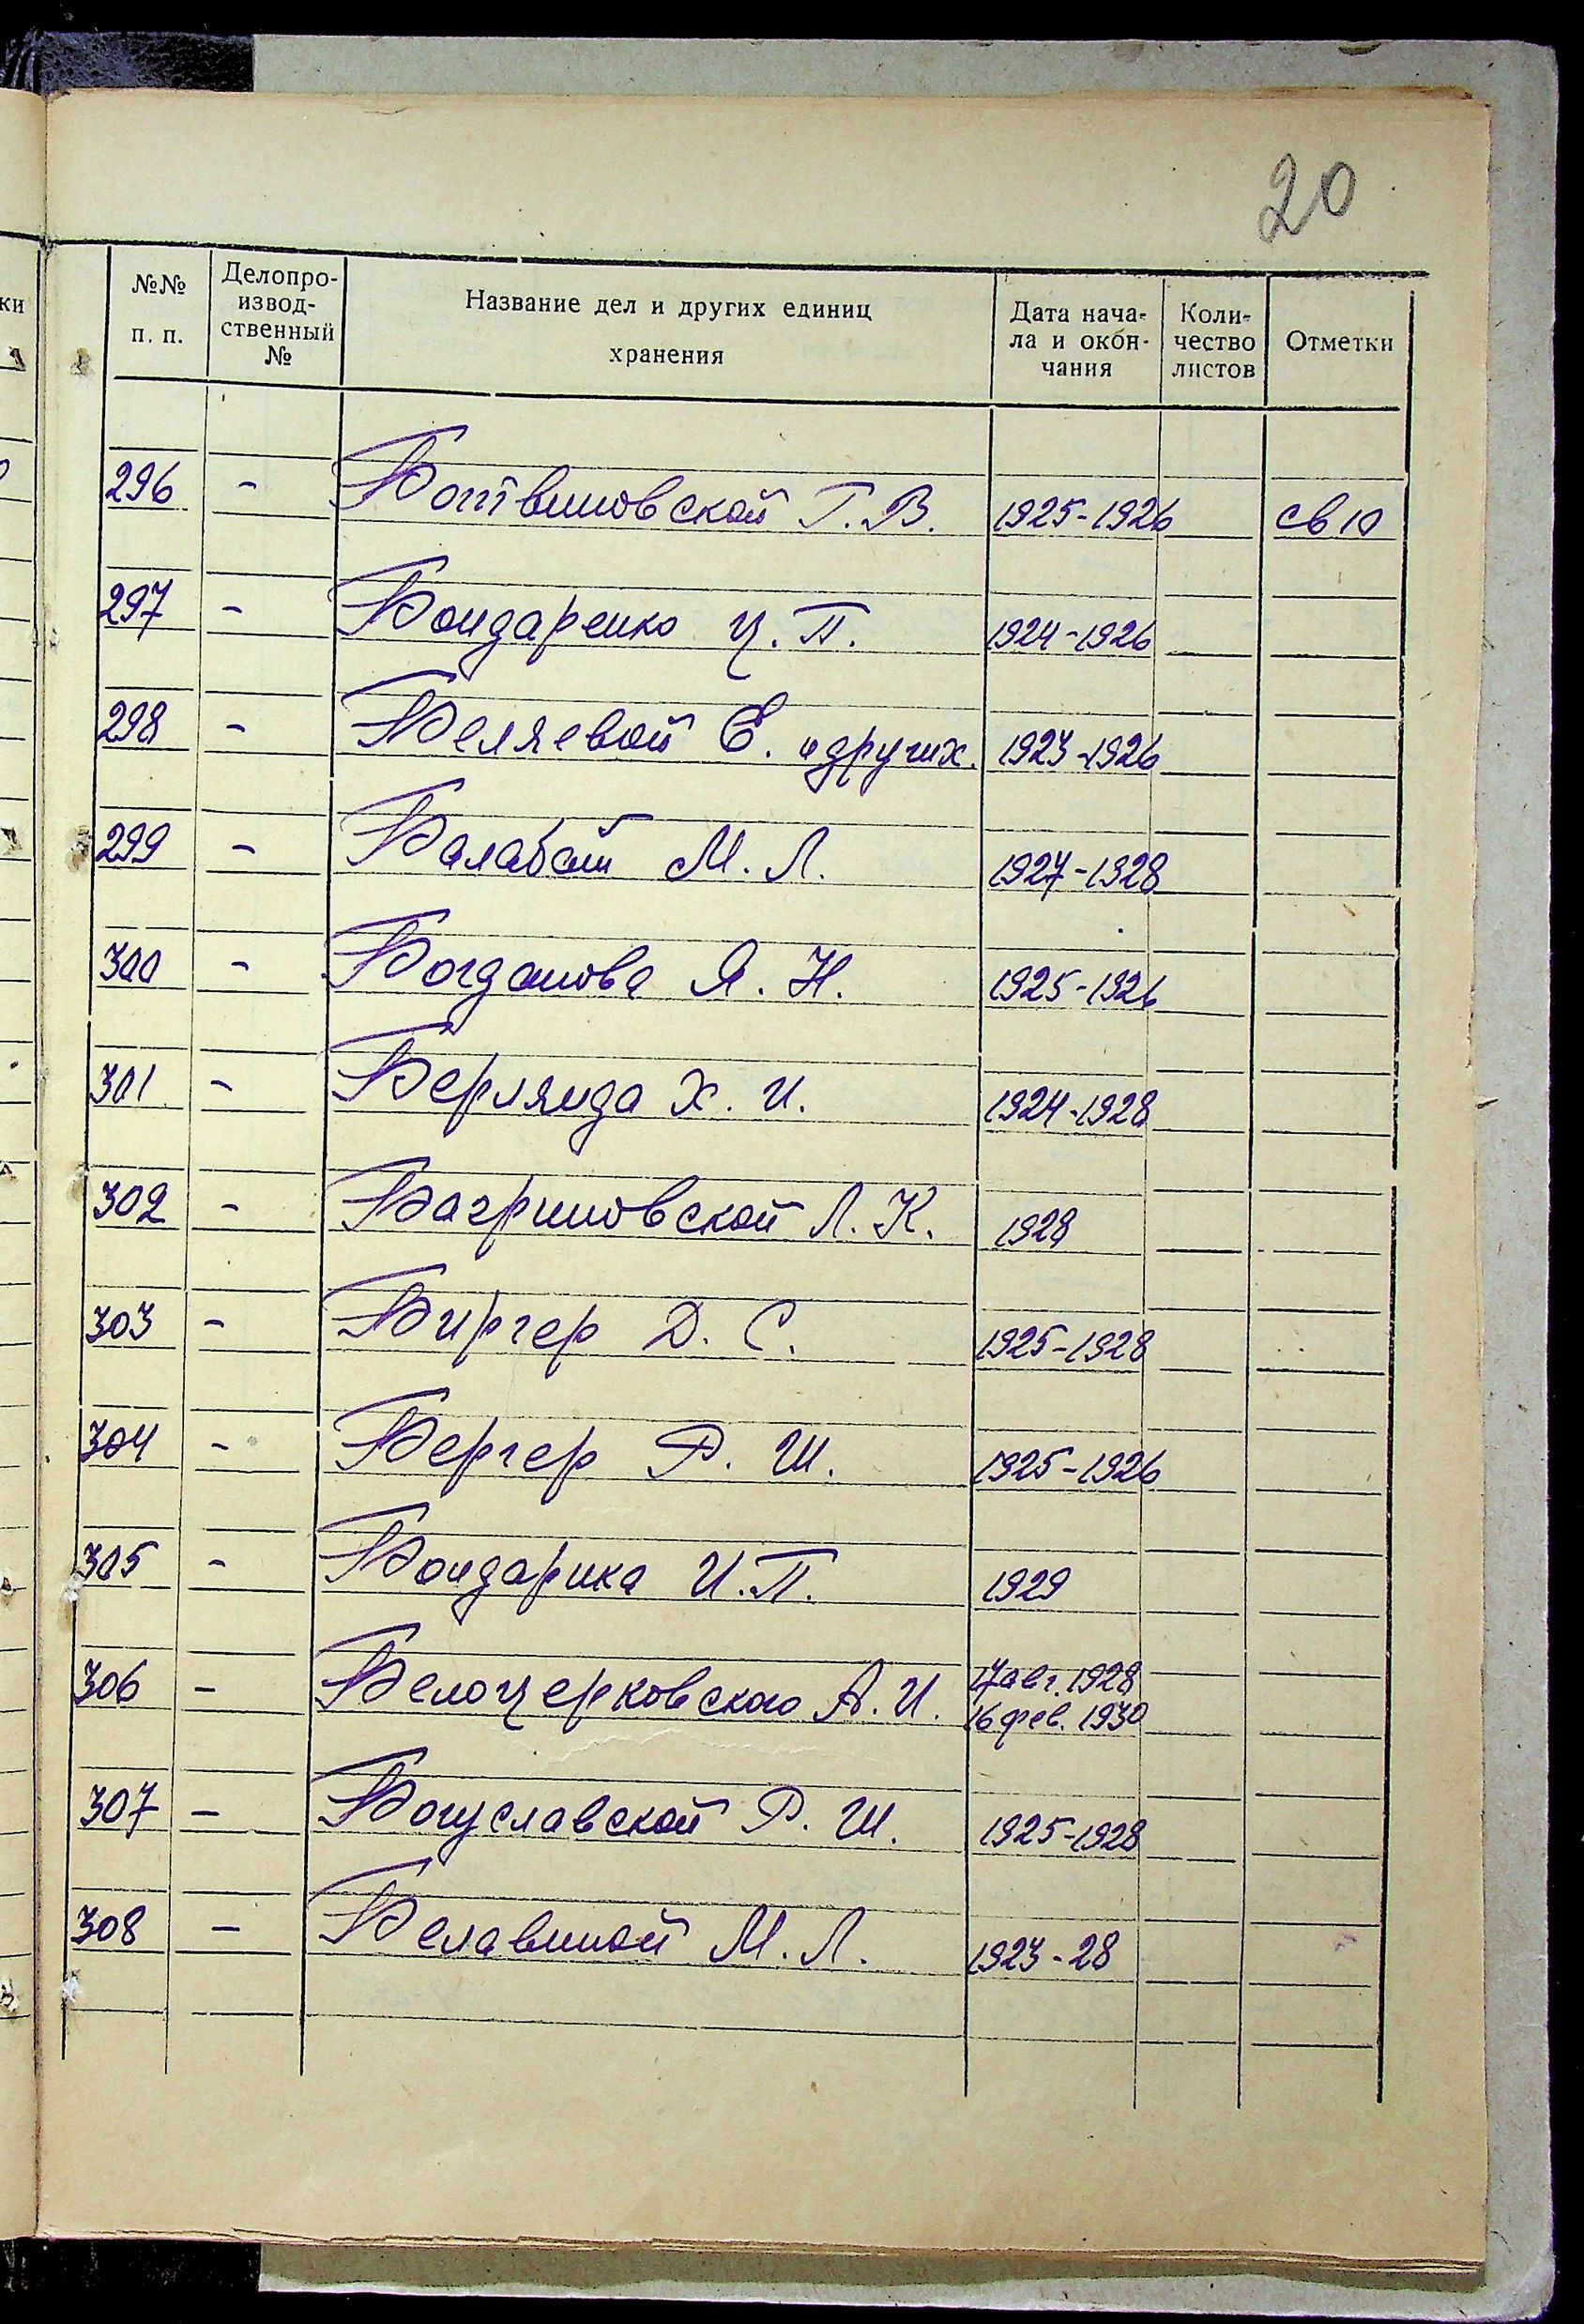 20
№№ п. п.
Делопро-
извод-
ственный
№
Название дел и других единиц
хранения
Дата нача-
ла и окон-
чания
Коли-
чество
листов
Отметки
296 - Ботвиновской Г. В. 1925-1926 св 10
297 - Бондаренко Ц. П. 1924-1926
298 - Беляевой Е. и других. 1923-1926
299 - Балабан М. Л. 1927-1928
300 - Богданова Я. Н. 1925-1926
301 - Берлянда Х. И. 1924-1928
302 - Багриновской Л. К. 1928
303 - Биргер Д. С. 1925-1928
304 - Бергер Р. Ш. 1925-1926
305 - Бондарика И. П. 1929
306 - Белоцерковского А. И. 17 авг. 1928
16 фев. 1930
307 - Богуславской Р. Ш. 1925-1928
308 - Белавиной М. Л. 1923-28